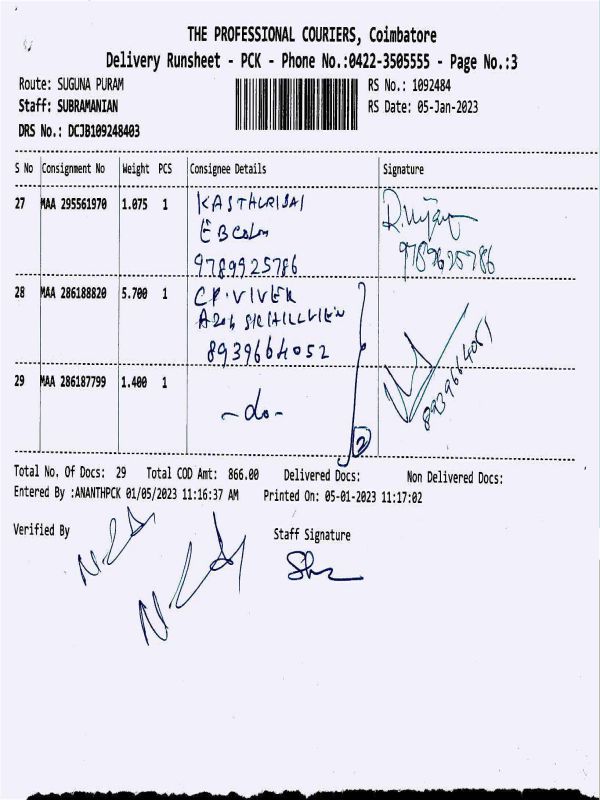 THE PROFESSIONAL COURIERS, Coimbatore
Delivery Runsheet - PCK - Phone No.:0422-3505555 - Page No.:3
Route: SUGUNA PURAM
RS No.: 1092484
Staff: SUBRAMANIAN
RS Date: 05-Jan-2023
DRS No.: DCJB109248403
S No Consignment No Weight PCS Consignee Details Signature
27 MAA 295561970 1.075 1 KASTHURIBAI
EB Colony
9789925786
9789625786
28 MAA 286188820 5.700 1 CP. VIVEK
8939664052
29 MAA 286187799 1.400 1 -do-
2
Total No. Of Docs: 29 Total COD Amt: 866.00 Delivered Docs: Non Delivered Docs:
Entered By :ANANTHPCK 01/05/2023 11:16:37 AM Printed On: 05-01-2023 11:17:02
Verified By
Staff Signature